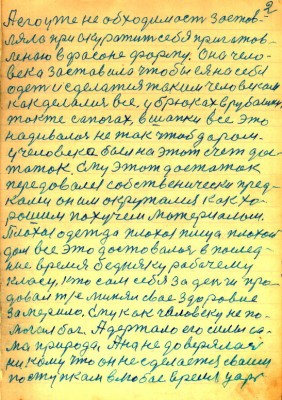 2
Асгоуте необходимост застов-
ляла приокуротит себя приготов-
леною в фасоне форму. Она чело-
века заставила чтобы ся на себя
одет и сделатся таким человеком
как делалися все, у брюках в рубашки
тоже сапогах, в шапки все это
надивалоя не так чтоб даром.
у человека был на этот счет дос-
таток. Ему этот достаток
передовался собственически пред-
ками он им окруталия как хо-
рошим похучем материалом.
Плохая одетда плохая пища плохой
дом все это достовалоя в послед-
ние время бедняку рабочему
класу, кто сам себя за денги про-
довал т/е минял свое здоровие
замерило. Ему как человеку не по-
могал бог. А держало его силы са-
ма природа, Она не доверялая
никому что он не сделается своим
поступкам в любое время удар